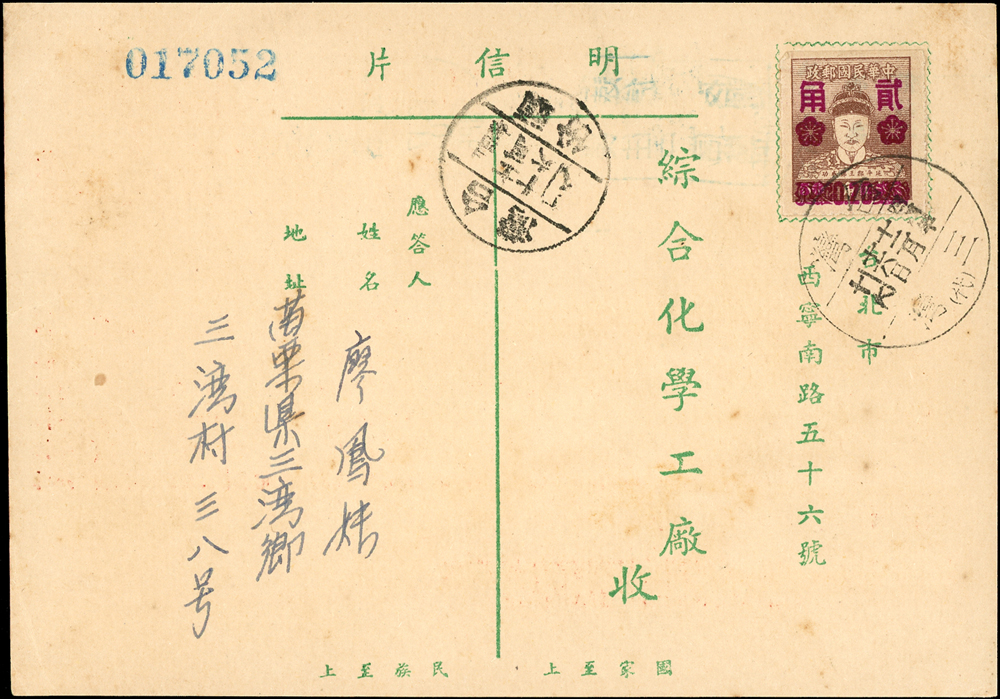 017052
明信片
中華民國郵政
貳角
0.20
台北市
西寧南路五十六號
綜合化學工廠
收
應答人
姓名
廖鳳
地址
苗栗県三湾鄉
三湾村三八号
國家至上
民族至上